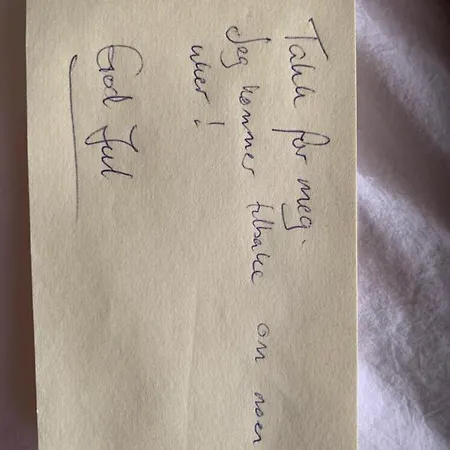 Takk for meg.
Jeg kommer tilbake om noen
uker!
God Jul